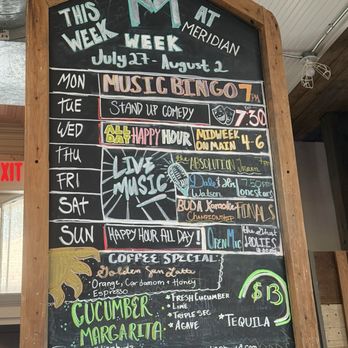 THIS WEEK
M
AT MERIDIAN
WEEK
July 27 - August 2
MON MUSIC BINGO 7PM
TUE STAND UP COMEDY 7:30
WED ALL DAY HAPPY HOUR MIDWEEK ON MAIN 4-6
THU LIVE MUSIC the ABSOLUTION
FRI Dale Watson 7:30pm Lonestars
SAT BUDA Karaoke CHAMPIONSHIP FINALS
SUN HAPPY HOUR ALL DAY! Open Mic
COFFEE SPECIAL
Golden Sun Latte
- Orange, Cardamom + Honey
- Espresso
CUCUMBER MARGARITA
* FRESH CUCUMBER
* LIME
* TRIPLE SEC
* AGAVE
* TEQUILA
$13